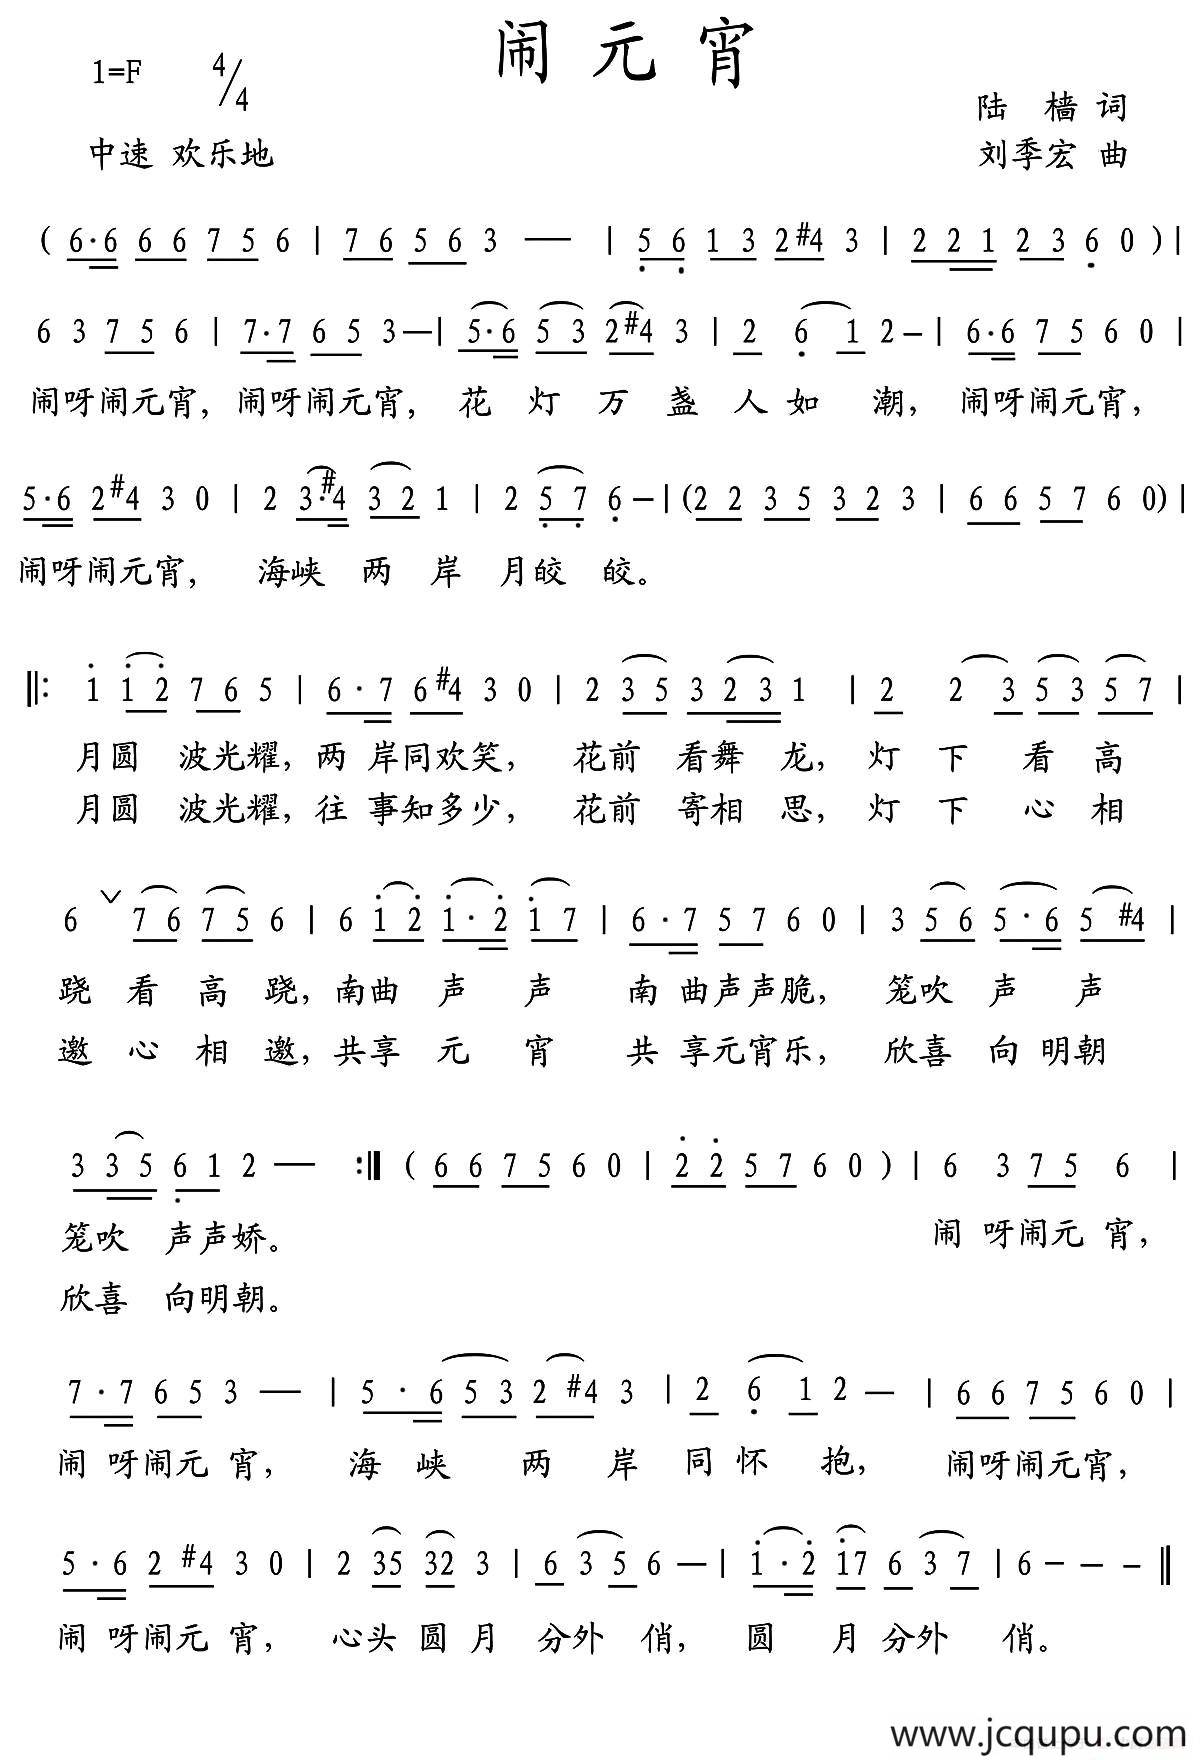 闹元宵
1=F 4/4
陆 樯 词
中速 欢乐地
刘季宏 曲
( 6·6 6 6 7 5 6 | 7 6 5 6 3 — | 5 6 1 3 2 #4 3 | 2 2 1 2 3 6 0 ) |
6 3 7 5 6 | 7·7 6 5 3 — | 5·6 5 3 2 #4 3 | 2 6 1 2 — | 6·6 7 5 6 0 |
闹呀闹元宵，闹呀闹元宵，花 灯 万 盏 人 如 潮，闹呀闹元宵，
5·6 2 #4 3 0 | 2 3·#4 3 2 1 | 2 5 7 6 — | (2 2 3 5 3 2 3 | 6 6 5 7 6 0) |
闹呀闹元宵， 海峡 两 岸 月皎 皎。
‖: 1 1 2 7 6 5 | 6·7 6 #4 3 0 | 2 3 5 3 2 3 1 | 2 2 3 5 3 5 7 |
月圆 波光耀，两 岸同欢笑， 花前 看舞 龙，灯 下 看 高
月圆 波光耀，往 事知多少， 花前 寄相 思，灯 下 心 相
6 ∨ 7 6 7 5 6 | 6 1 2 1·2 1 7 | 6·7 5 7 6 0 | 3 5 6 5·6 5 #4 |
跷 看 高 跷，南曲 声 声 南 曲声声脆， 笼吹 声 声
邀 心 相 邀，共享 元 宵 共 享元宵乐， 欣喜 向 明朝
3 3 5 6 1 2 — :‖ ( 6 6 7 5 6 0 | 2 2 5 7 6 0 ) | 6 3 7 5 6 |
笼吹 声声娇。 闹 呀闹元 宵，
欣喜 向明朝。
7·7 6 5 3 — | 5·6 5 3 2 #4 3 | 2 6 1 2 — | 6 6 7 5 6 0 |
闹 呀闹元 宵， 海 峡 两 岸 同 怀 抱， 闹呀闹元宵，
5·6 2 #4 3 0 | 2 35 32 3 | 6 3 5 6 — | 1·2 17 6 3 7 | 6 – – – ‖
闹 呀闹元 宵， 心头 圆 月 分外 俏， 圆 月 分外 俏。
www.jcqupu.com